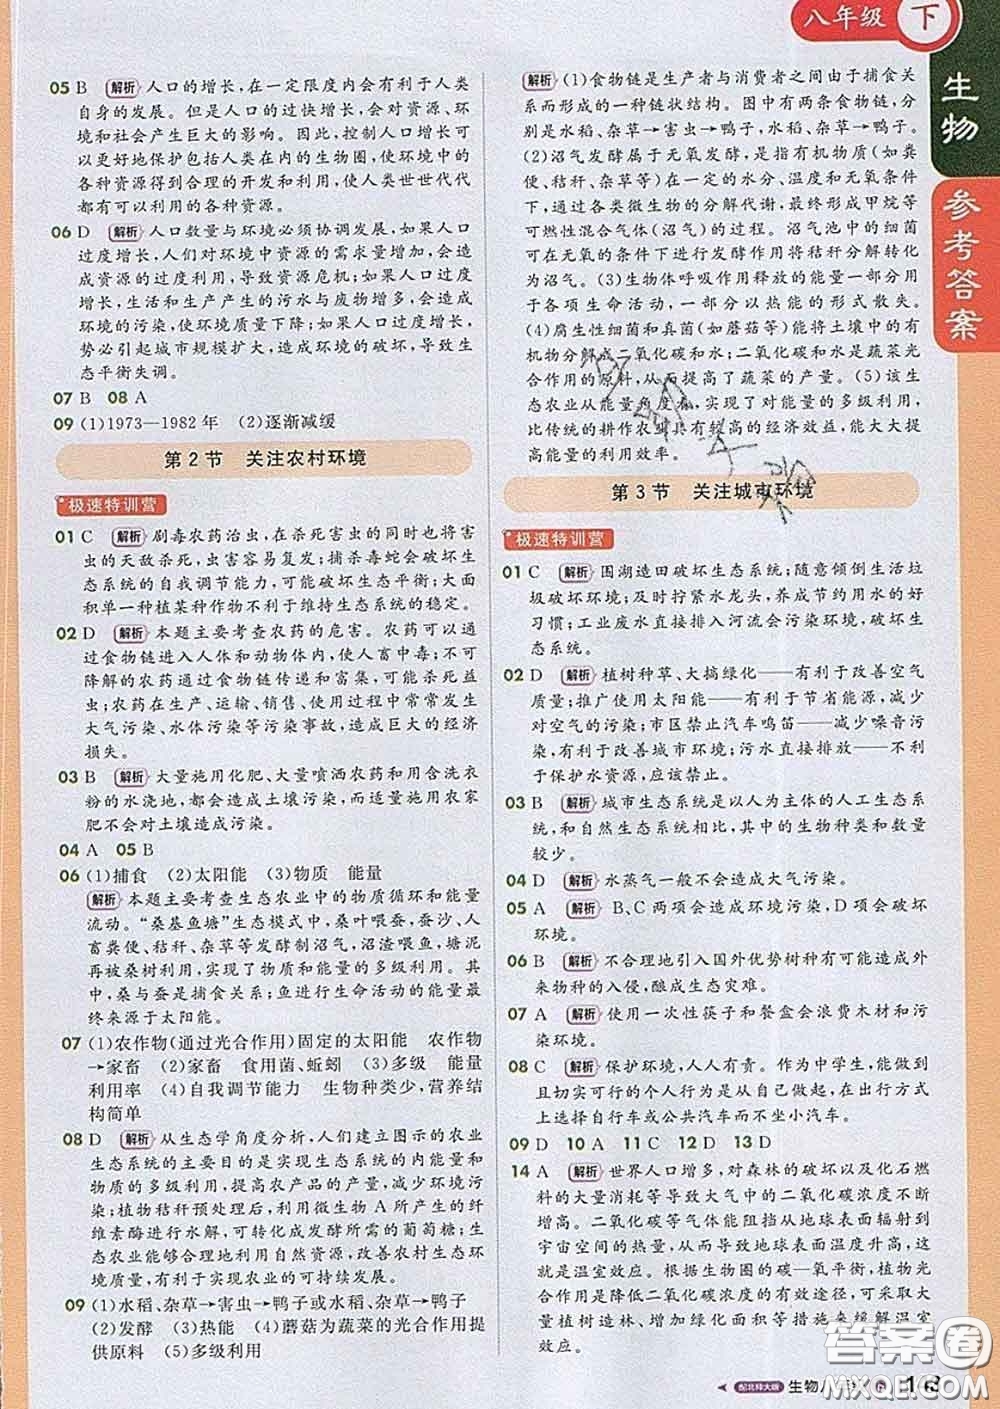 八年级 下
生物
参考答案
05 B 解析 人口的增长，在一定限度内会有利于人类
自身的发展。但是人口的过快增长，会对资源、环
境和社会产生巨大的影响。因此，控制人口增长可
以更好地保护包括人类在内的生物圈，使环境中的
各种资源得到合理的开发和利用，使人类世世代代
都有可利用的各种资源。
06 D 解析 人口数量与环境必须协调发展，如果人口
过度增长，人们对环境中资源的需求量增大，会造
成资源的过度利用，导致资源危机；如果人口过度
增长，生活和生产产生的污水与废物增多，会造成
环境的污染，使环境质量下降；如果人口过度增长，
势必引起城市规模扩大，造成环境的破坏，导致生
态平衡失调。
07 B 08 A
09 (1)1973—1982 年 (2)逐渐减缓
第 2 节 关注农村环境
极速特训营
01 C 解析 剧毒农药治虫，在杀死害虫的同时也将害
虫的天敌杀死，虫害容易复发；捕杀毒蛇会破坏生
态系统的自我调节能力，可能破坏生态平衡；大面
积单一种植某种作物不利于维持生态系统的稳定。
02 D 解析 本题主要考查农药的危害。农药可以通
过食物链进入人体和动物体内，使人畜中毒；不可
降解的农药通过食物链传递和富集，可能杀死益
虫；农药在生产、运输、销售、使用过程中常常发生
大气污染、水体污染等污染事故，造成巨大的经济
损失。
03 B 解析 大量施用化肥、大量喷洒农药和用含洗衣
粉的水浇地，都会造成土壤污染，而适量施用农家
肥不会对土壤造成污染。
04 A 05 B
06 (1)捕食 (2)太阳能 (3)物质 能量
解析 本题主要考查生态农业中的物质循环和能量
流动。“桑基鱼塘”生态模式中，桑叶喂蚕，蚕沙、人
畜粪便、秸秆、杂草等发酵制沼气，沼渣喂鱼，塘泥
再被桑树利用，实现了物质和能量的多级利用。其
中，桑与蚕是捕食关系；鱼进行生命活动的能量最
终来源于太阳能。
07 (1)农作物(通过光合作用)固定的太阳能 农作物
→家畜 (2)家畜 食用菌、蚯蚓 (3)多级 能量
利用率 (4)自我调节能力 生物种类少，营养结
构简单
08 D 解析 从生态学角度分析，人们建立图示的农业
生态系统的主要目的是实现系统内的能量和
物质的多级利用，提高农产品的产量，减少环境污
染；植物秸秆预处理后，利用微生物 A 所产生的纤
维素酶进行水解，可转化成发酵所需的葡萄糖；
生态农业能够合理地利用自然资源，改善农村生态环
境质量，有利于实现农业的可持续发展。
09 (1)水稻、杂草→害虫→鸭子或水稻、杂草→鸭子
(2)发酵 (3)热能 (4)蘑菇为蔬菜的光合作用提
供原料 (5)多级利用
解析 (1)食物链是生产者与消费者之间由于捕食关
系而形成的一种链状结构。图中有两条食物链，分
别是水稻、杂草→害虫→鸭子，水稻、杂草→鸭子。
(2)沼气发酵属于无氧发酵，是指有机物质(如粪
便、秸秆、杂草等)在一定的水分、温度和无氧条件
下，通过各类微生物的分解代谢，最终形成甲烷等
可燃性混合气体(沼气)的过程。沼气池中的细菌
可在无氧的条件下进行发酵作用将秸秆分解转化
为沼气。(3)生物体呼吸作用释放的能量一部分用
于各项生命活动，一部分以热能的形式散失。
(4)腐生性细菌和真菌(如蘑菇等)能将土壤中的有
机物分解成二氧化碳和水；二氧化碳和水是蔬菜光
合作用的原料，从而提高了蔬菜的产量。(5)该生
态农业从能量角度看，实现了对能量的多级利用，
比传统的耕作农业具有较高的经济效益，能大大提
高能量利用效率。
第 3 节 关注城市环境
极速特训营
01 C 解析 围湖造田破坏生态系统；随意倾倒生活垃
圾破坏环境；及时拧紧水龙头，养成节约用水的好
习惯；工业废水直接排入河流会污染环境，破坏生
态系统。
02 D 解析 植树种草、大搞绿化——有利于改善空气
质量；推广使用太阳能——有利于节省能源，减少
对空气的污染；市区禁止汽车鸣笛——减少噪音污
染，有利于改善城市环境；污水直接排放——不利
于保护水资源，应该禁止。
03 B 解析 城市生态系统是以人为主体的人工生态系
统，和自然生态系统相比，其中的生物种类和数量
较少。
04 D 解析 水蒸气一般不会造成大气污染。
05 A 解析 B、C 两项会造成环境污染，D 项会破坏
环境。
06 B 解析 不合理地引入国外优势树种有可能造成外
来物种的入侵，酿成生态灾难。
07 A 解析 使用一次性筷子和餐盒会浪费木材和污
染环境。
08 C 解析 保护环境，人人有责。作为中学生，能做
到切实可行的个人行为是从自身做起，在出行方式
上选择自行车或公共汽车而不坐小汽车。
09 D 10 A 11 C 12 D 13 D
14 A 解析 世界人口增多，对森林的破坏以及化石燃
料的大量消耗等导致大气中的二氧化碳浓度不断
增高。二氧化碳等气体能阻挡从地球表面辐射到
宇宙空间的热量，从而导致地球表面温度升高，这
就是温室效应。根据生物圈的碳—氧平衡，植物光
合作用是降低二氧化碳浓度的主要途径，可采取大
量植树造林、增加绿化面积等措施来缓解温室
效应。
配北师大版 生物八年级
答案圈